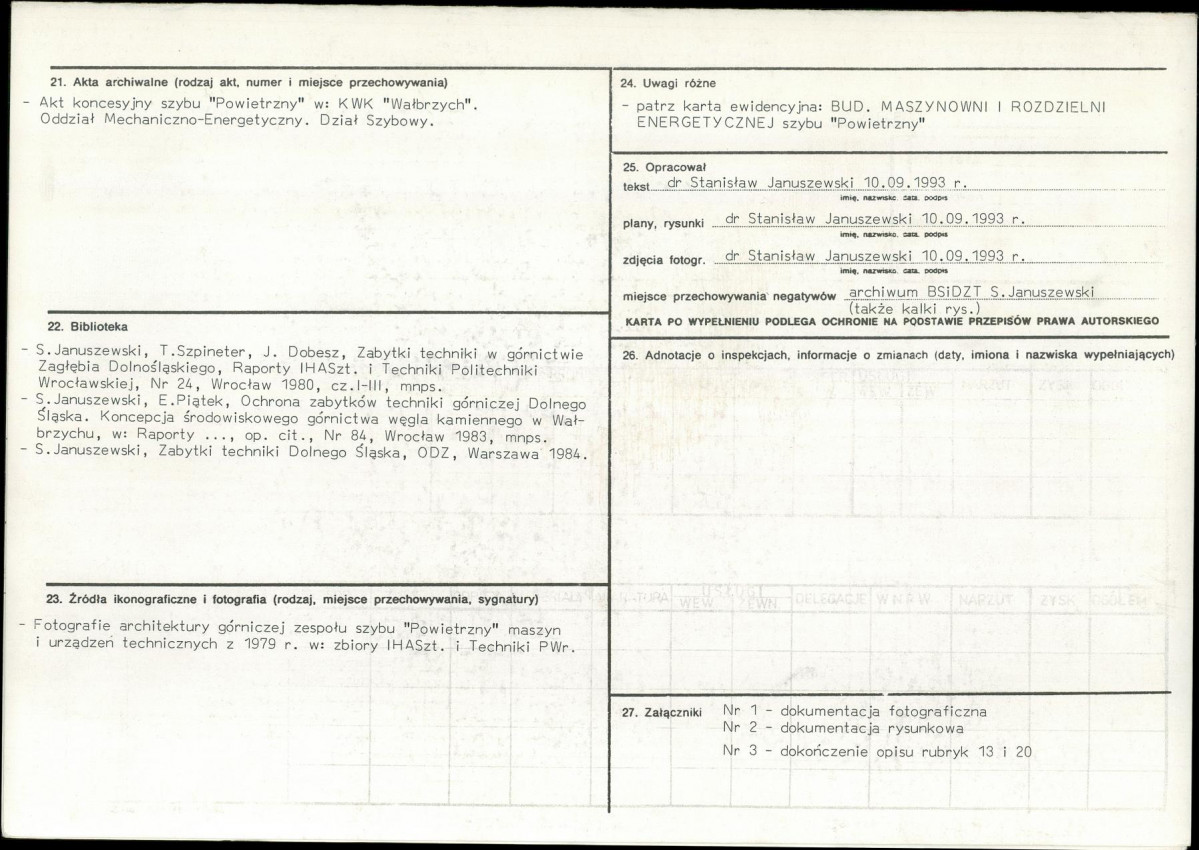 21. Akta archiwalne (rodzaj akt, numer i miejsce przechowywania)
- Akt koncesyjny szybu "Powietrzny" w: KWK "Wałbrzych".
Oddział Mechaniczno-Energetyczny. Dział Szybowy.
22. Biblioteka
- S.Januszewski, T.Szpineter, J. Dobesz, Zabytki techniki w górnictwie
Zagłębia Dolnośląskiego, Raporty IHASzt. i Techniki Politechniki
Wrocławskiej, Nr 24, Wrocław 1980, cz.I-III, mnps.
- S.Januszewski, E.Piątek, Ochrona zabytków techniki górniczej Dolnego
Śląska. Koncepcja środowiskowego górnictwa węgla kamiennego w Wał-
brzychu, w: Raporty ..., op. cit., Nr 84, Wrocław 1983, mnps.
- S.Januszewski, Zabytki techniki Dolnego Śląska, ODZ, Warszawa 1984.
23. Źródła ikonograficzne i fotografia (rodzaj, miejsce przechowywania, sygnatury)
- Fotografie architektury górniczej zespołu szybu "Powietrzny" maszyn
i urządzeń technicznych z 1979 r. w: zbiory IHASzt. i Techniki PWr.
24. Uwagi różne
- patrz karta ewidencyjna: BUD. MASZYNOWNI I ROZDZIELNI
ENERGETYCZNEJ szybu "Powietrzny"
25. Opracował
tekst dr Stanisław Januszewski 10.09.1993 r.
imię, nazwisko, data, podpis
plany, rysunki dr Stanisław Januszewski 10.09.1993 r.
imię, nazwisko, data, podpis
zdjęcia fotogr. dr Stanisław Januszewski 10.09.1993 r.
imię, nazwisko, data, podpis
miejsce przechowywania negatywów archiwum BSiDZT S.Januszewski
(także kalki rys.)
KARTA PO WYPEŁNIENIU PODLEGA OCHRONIE NA PODSTAWIE PRZEPISÓW PRAWA AUTORSKIEGO
26. Adnotacje o inspekcjach, informacje o zmianach (daty, imiona i nazwiska wypełniających)
USŁUGI
WEW ZEWN DELEGACJE W N R W NARZUT ZYSK OGÓŁEM
27. Załączniki Nr 1 - dokumentacja fotograficzna
Nr 2 - dokumentacja rysunkowa
Nr 3 - dokończenie opisu rubryk 13 i 20